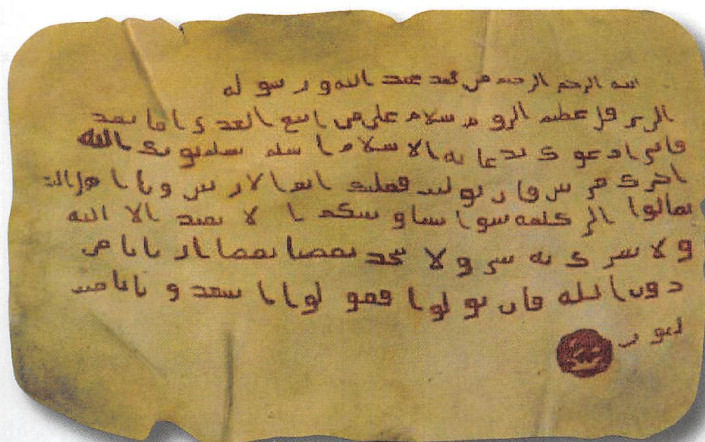 بسم الله الرحمن الرحيم من محمد عبد الله و رسوله
الى هرقل عظيم الروم سلام على من اتبع الهدى اما بعد
فانى ادعوك بدعاية الاسلام اسلم تسلم يوتك الله
اجرك مرتين فان توليت فعليك اثم الاريسين ويا اهل الكتب
تعالوا الى كلمة سوا بيننا وبينكم ا لا نعبد الا الله
ولا نشرك به شى ولا يتخذ بعضنا بعضا اربابا من
دون الله فان تولوا فقولوا اشهدوا بانا مس
لمون